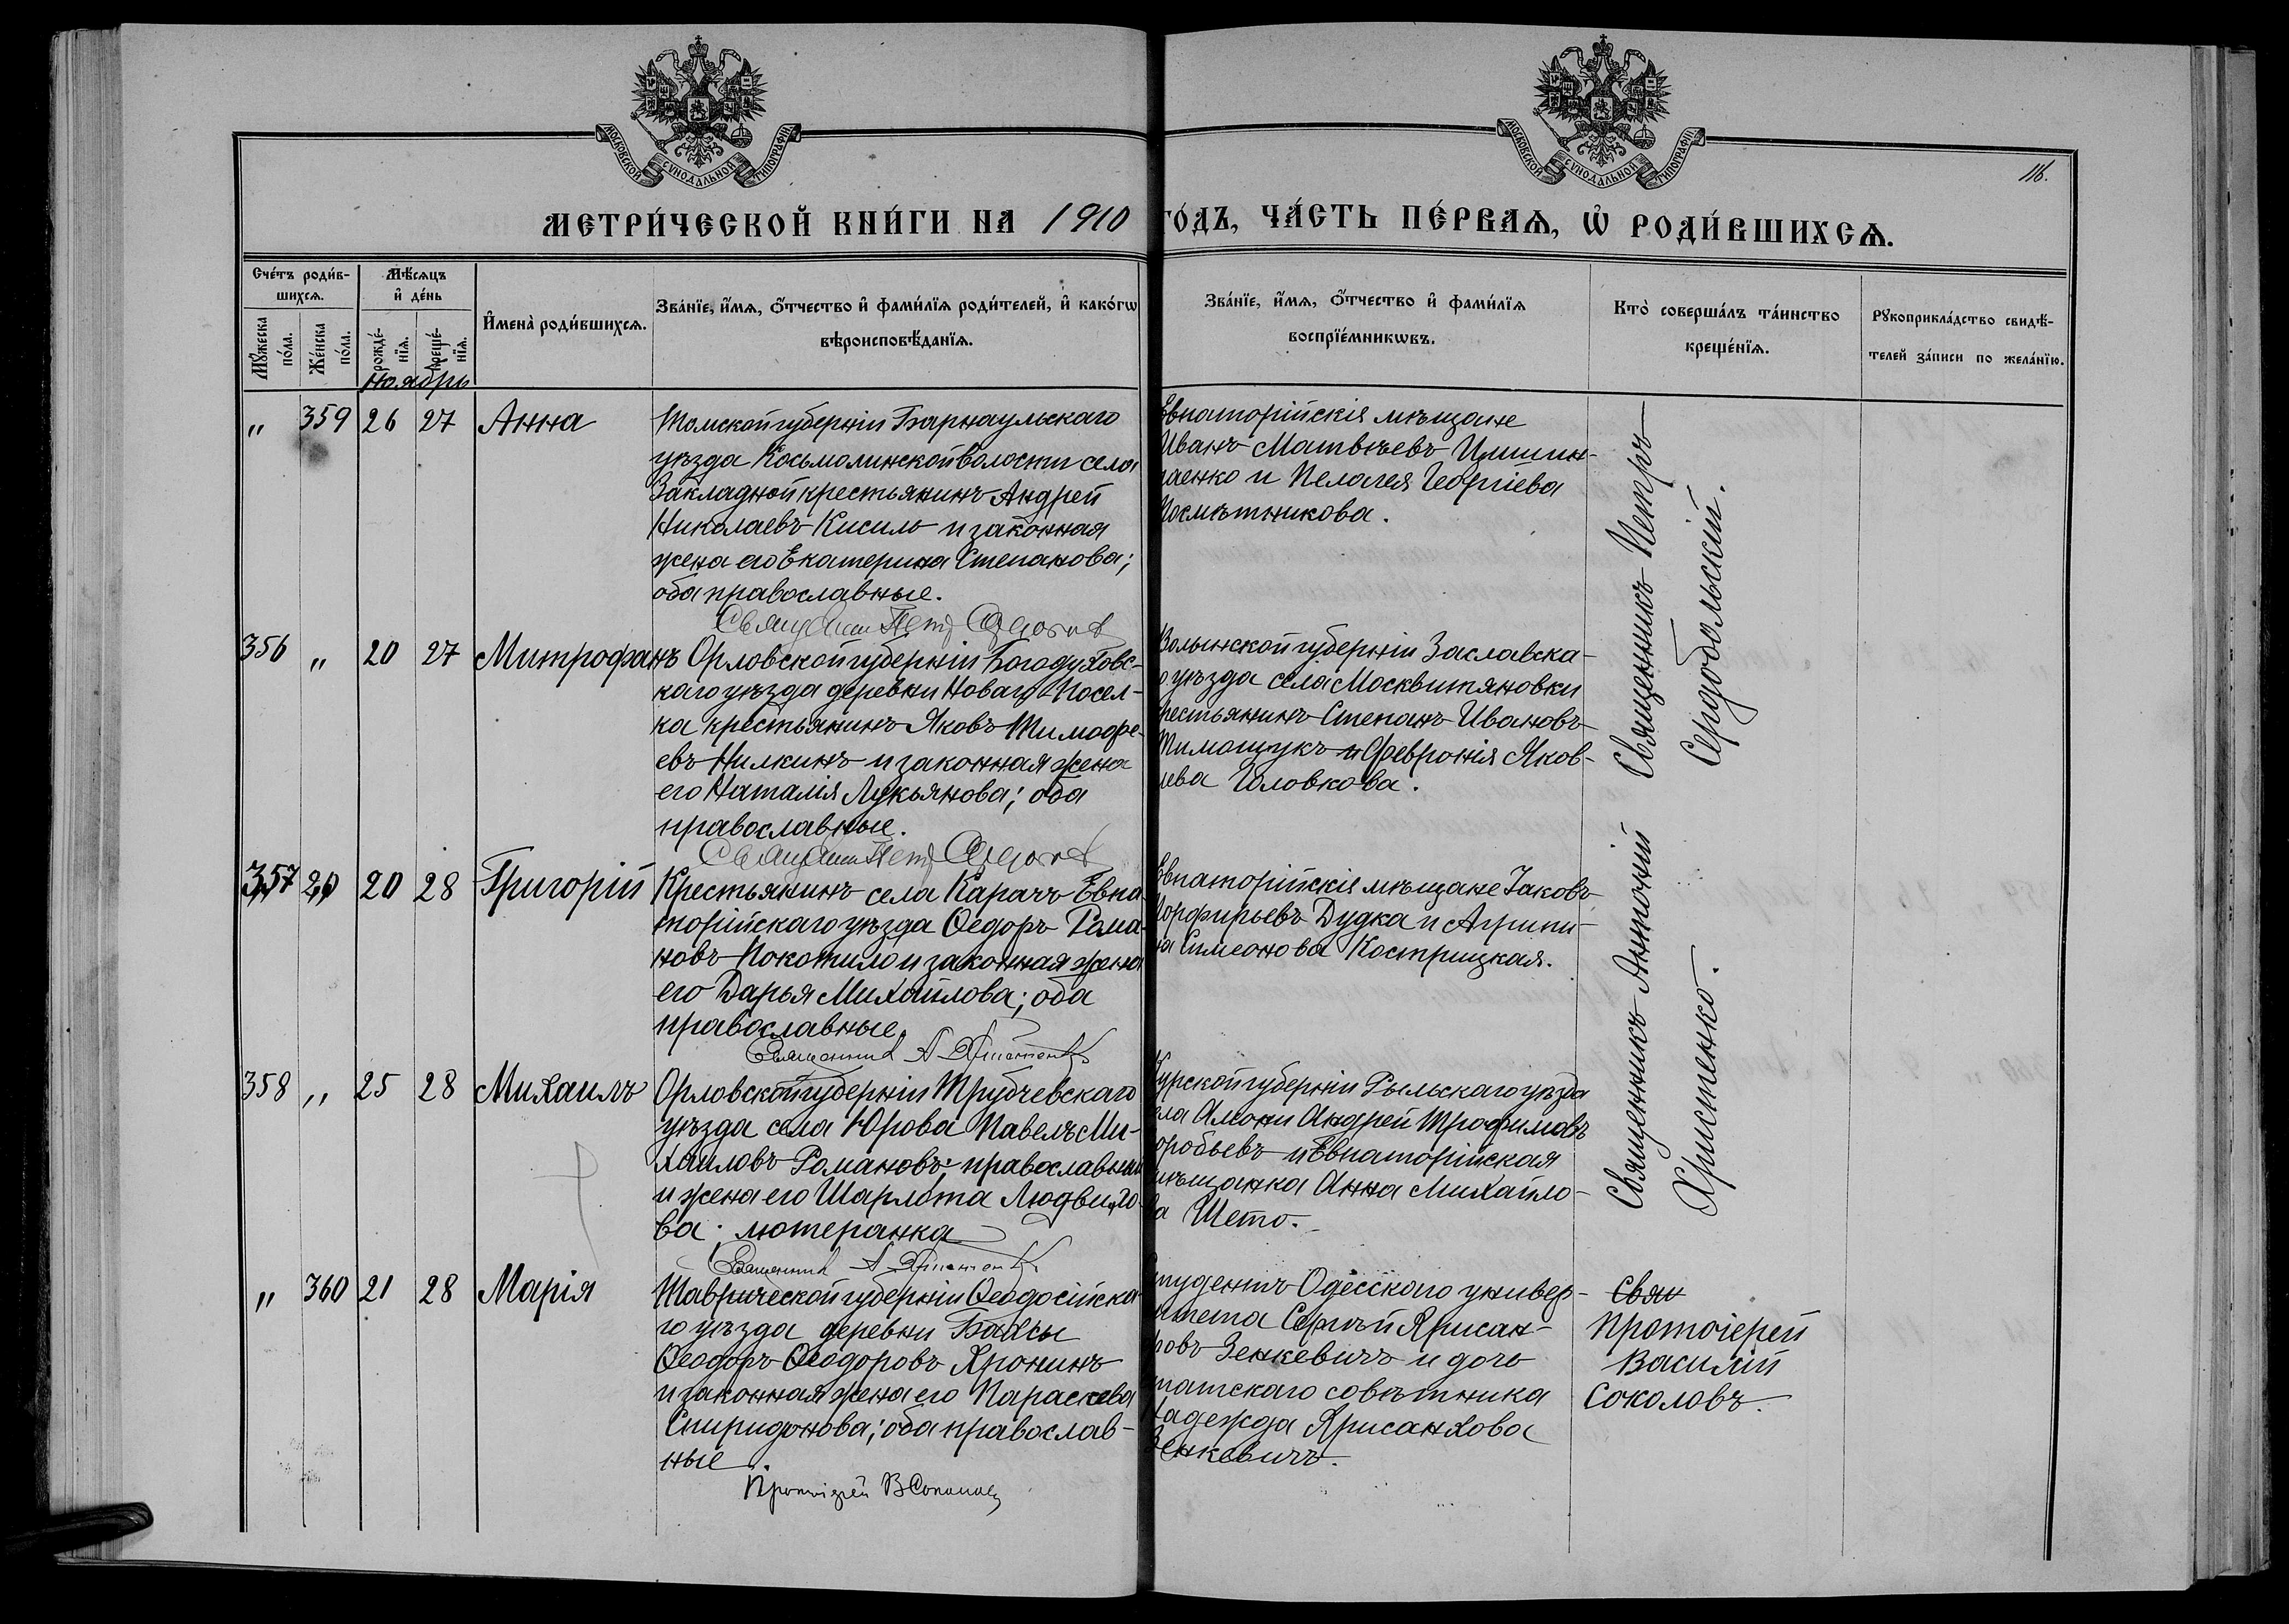 МОСКОВСКОЙ СѴНОДАЛЬНОЙ ТИПОГРАФІИ
МОСКОВСКОЙ СѴНОДАЛЬНОЙ ТИПОГРАФІИ
116.
МЕТРИ́ЧЕСКОЙ КНИ́ГИ НА 1910 ГО́ДЪ, ЧА́СТЬ ПЕ́РВАѦ, Ѡ҆ РОДИ́ВШИХСѦ.
Сче́тъ роди́в-
шихсѧ.
Мꙋ́жеска по́ла.
Же́нска по́ла.
Мѣ́сѧцъ
и҆ де́нь
рожде́-нїѧ.
креще́-нїѧ.
И҆мена̀ роди́вшихсѧ.
Зва́нїе, и҆́мѧ, ѻ҆́тчество и҆ фами́лїѧ роди́телей, и҆ како́гѡ
вѣроисповѣ́данїѧ.
Зва́нїе, и҆́мѧ, ѻ҆́тчество и҆ фами́лїѧ
воспрїе́мникѡвъ.
Кто̀ соверша́лъ та́инство
креще́нїѧ.
Рꙋкоприкла́дство свидѣ́-
телей за́писи по жела́нїю.
ноябрь
" 359 26 27 Анна
Томской губерніи Барнаульскаго
уѣзда Косьмолинской волости села
Закладной крестьянинъ Андрей
Николаевъ Кисиль и законная
жена его Екатерина Степанова;
оба православные.
Евпаторійскія мѣщане
Иванъ Матвѣевъ
и Пелагея Георгіева
Посмѣтникова.
Священникъ Петръ
Сердобольскій.
356 " 20 27 Митрофанъ
Орловской губерніи Богодуховс-
каго уѣзда деревни Новаго Посел-
ка крестьянинъ Яковъ Тимофе-
евъ Нилкинъ и законная жена
его Наталія Лукьянова; оба
православные.
Волынской губерніи Заславска-
го уѣзда села Москвитяновки
крестьянинъ Степанъ Ивановъ
Тимощукъ и Февронія Яков-
лева Головкова.
357 20 20 28 Григорій
Крестьянинъ села Карачъ Евпа-
торійскаго уѣзда Ѳедоръ Рома-
новъ Покотило и законная жена
его Дарья Михайлова; оба
православные.
Священник А Христенко
Евпаторійскія мѣщане Іаковъ
Порфирьевъ Дудка и Агрипи-
на Симеонова Кострицкая.
Священникъ Антоній
Христенко.
358 " 25 28 Михаилъ
Орловской губерніи Трубчевскаго
уѣзда села Юрова Павелъ Ми-
хаиловъ Романовъ; православный
и жена его Шарлота Людвихо-
ва; лютеранка
Священник А Христенко
Курской губерніи Рыльскаго уѣзда
села Амони Андрей Трофимовъ
Воробьевъ и Евпаторійская
мѣщанка Анна Михайло-
ва Шето.
" 360 21 28 Марія
Таврической губерніи Ѳеодосійска-
го уѣзда деревни Бахсы
Ѳеодоръ Ѳеодоровъ Хронинъ
и законная жена его Параскева
Спиридонова; оба православ-
ные.
Протоіерей В Соколовъ
Студентъ Одесскаго универ-
ситета Сергѣй Хрисан-
фовъ Зенкевичъ и дочь
статскаго совѣтника
Надежда Хрисанхова
Зенкевичъ.
Свян
Протоіерей
Василій
Соколовъ.